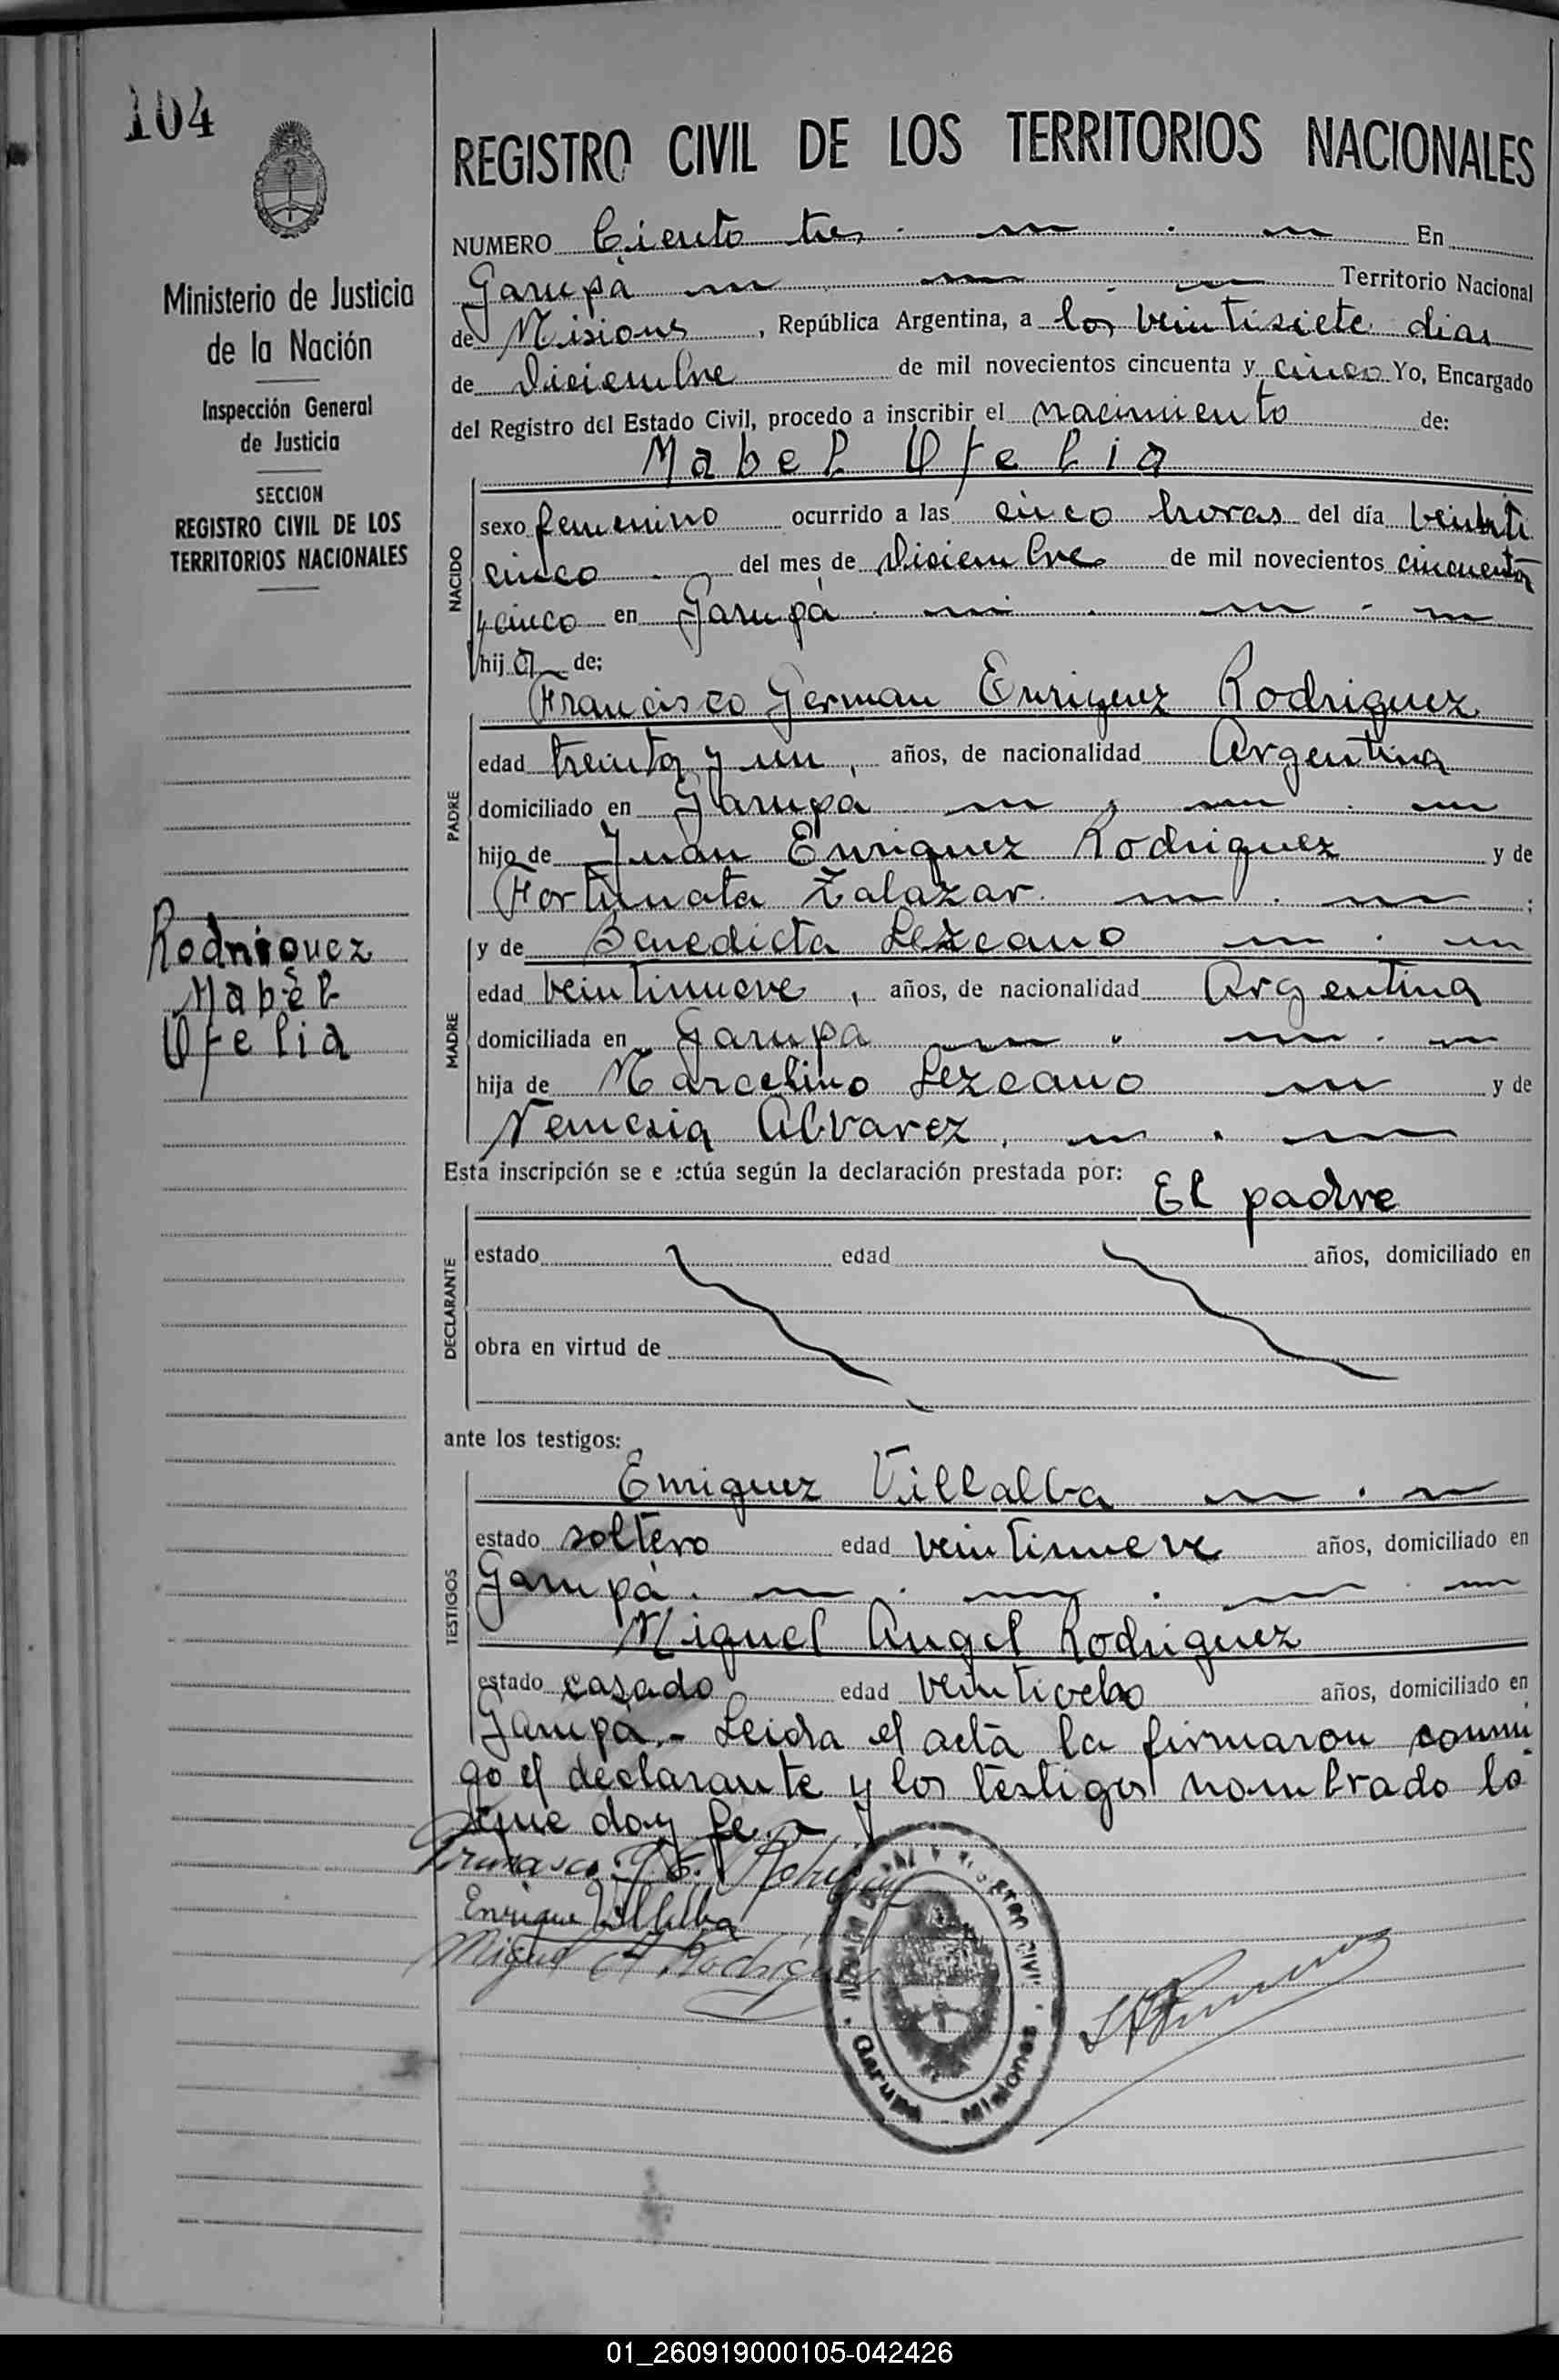 104
REGISTRO CIVIL DE LOS TERRITORIOS NACIONALES
Ministerio de Justicia
de la Nación
Inspección General
de Justicia
SECCION
REGISTRO CIVIL DE LOS
TERRITORIOS NACIONALES
Rodriguez
Mabel
Ofelia
NUMERO Ciento tres En
Garupá Territorio Nacional
de Misiones, República Argentina, a los veintisiete dias
de Diciembre de mil novecientos cincuenta y cinco Yo, Encargado
del Registro del Estado Civil, procedo a inscribir el nacimiento de:
Mabel Ofelia
NACIDO
sexo femenino ocurrido a las cinco horas del día veinti
cinco del mes de Diciembre de mil novecientos cincuenta
y cinco en Garupá
hija de:
Francisco German Enriquez Rodriguez
PADRE
edad treinta y un, años, de nacionalidad Argentina
domiciliado en Garupa
hijo de Juan Enriquez Rodriguez y de
Fortunata Zalazar ;
y de Benedicta Lezcano
MADRE
edad veintinueve, años, de nacionalidad Argentina
domiciliada en Garupa
hija de Marcelino Lezcano y de
Nemesia Alvarez
Esta inscripción se e ectúa según la declaración prestada por:
El padre
DECLARANTE
estado edad años, domiciliado en
obra en virtud de
ante los testigos:
Enriquez Villalba
TESTIGOS
estado soltero edad veintinueve años, domiciliado en
Garupá.
Miguel Angel Rodriguez
estado casado edad veintiocho años, domiciliado en
Garupá.- Leida el acta la firmaron conmi
go el declarante y los testigos nombrado lo
que doy fe.-
Francisco G. E. Rodriguez
Enrique Villalba
Miguel A Rodriguez
Garupá Misiones
01_260919000105-042426